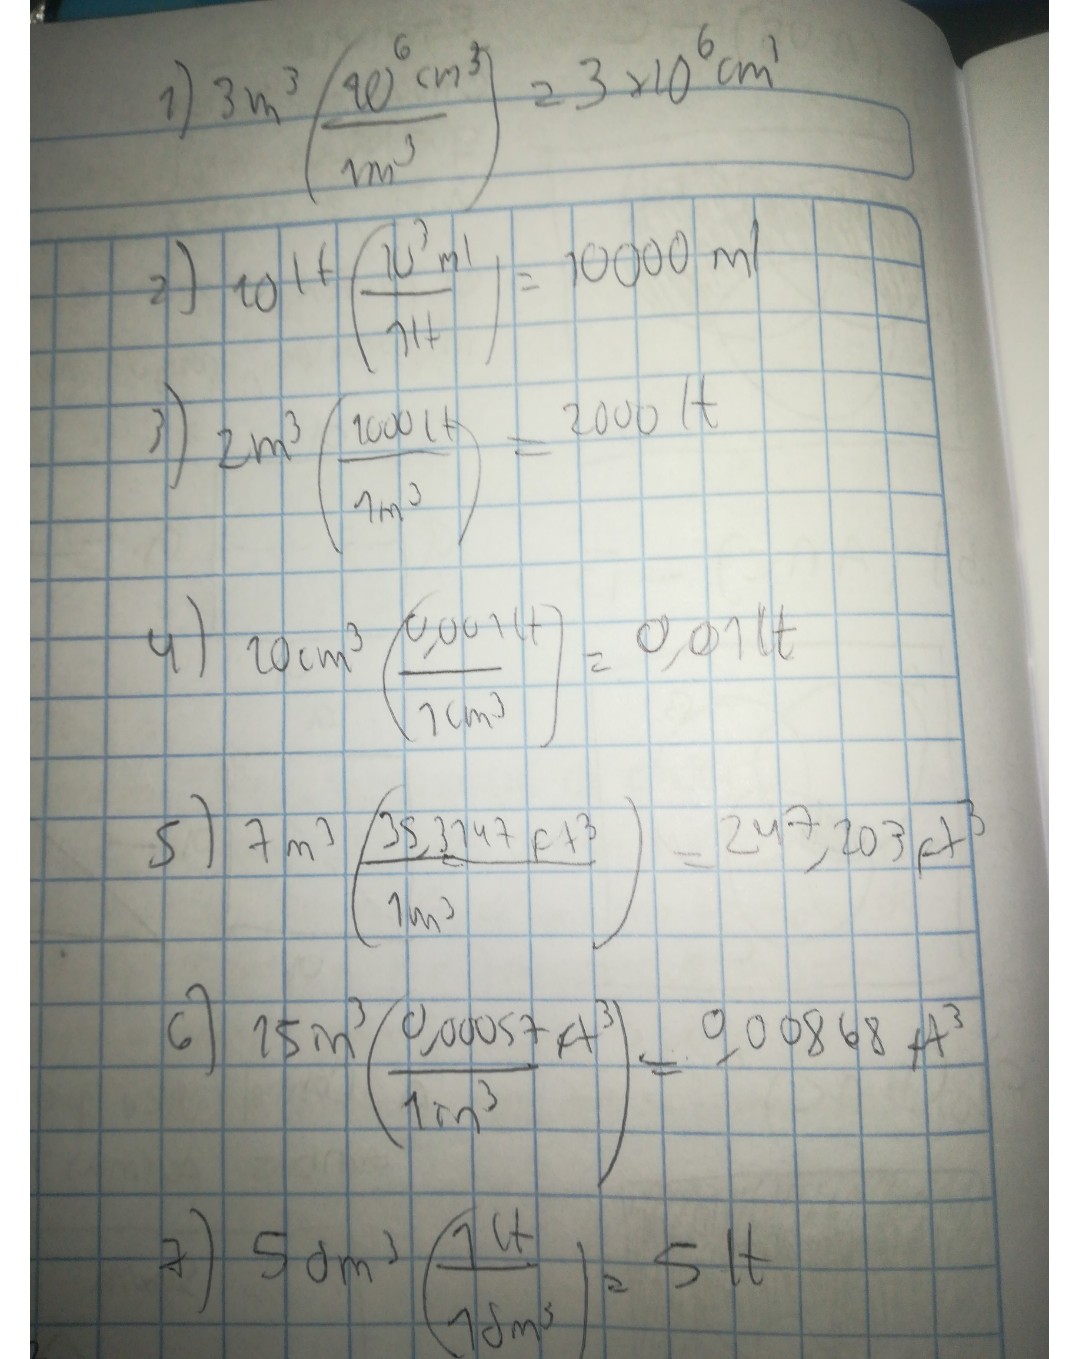 1) 3m³ (10⁶ cm³ / 1m³) = 3 x 10⁶ cm³
2) 10 lt (10³ ml / 1lt) = 10000 ml
3) 2m³ (1000 lt / 1m³) = 2000 lt
4) 10cm³ (0,001 lt / 1cm³) = 0,01 lt
5) 7m³ (35,3147 ft³ / 1m³) = 247,203 ft³
6) 15in³ (0,00057 ft³ / 1in³) = 0,00868 ft³
7) 5 dm³ (1 lt / 1dm³) = 5 lt